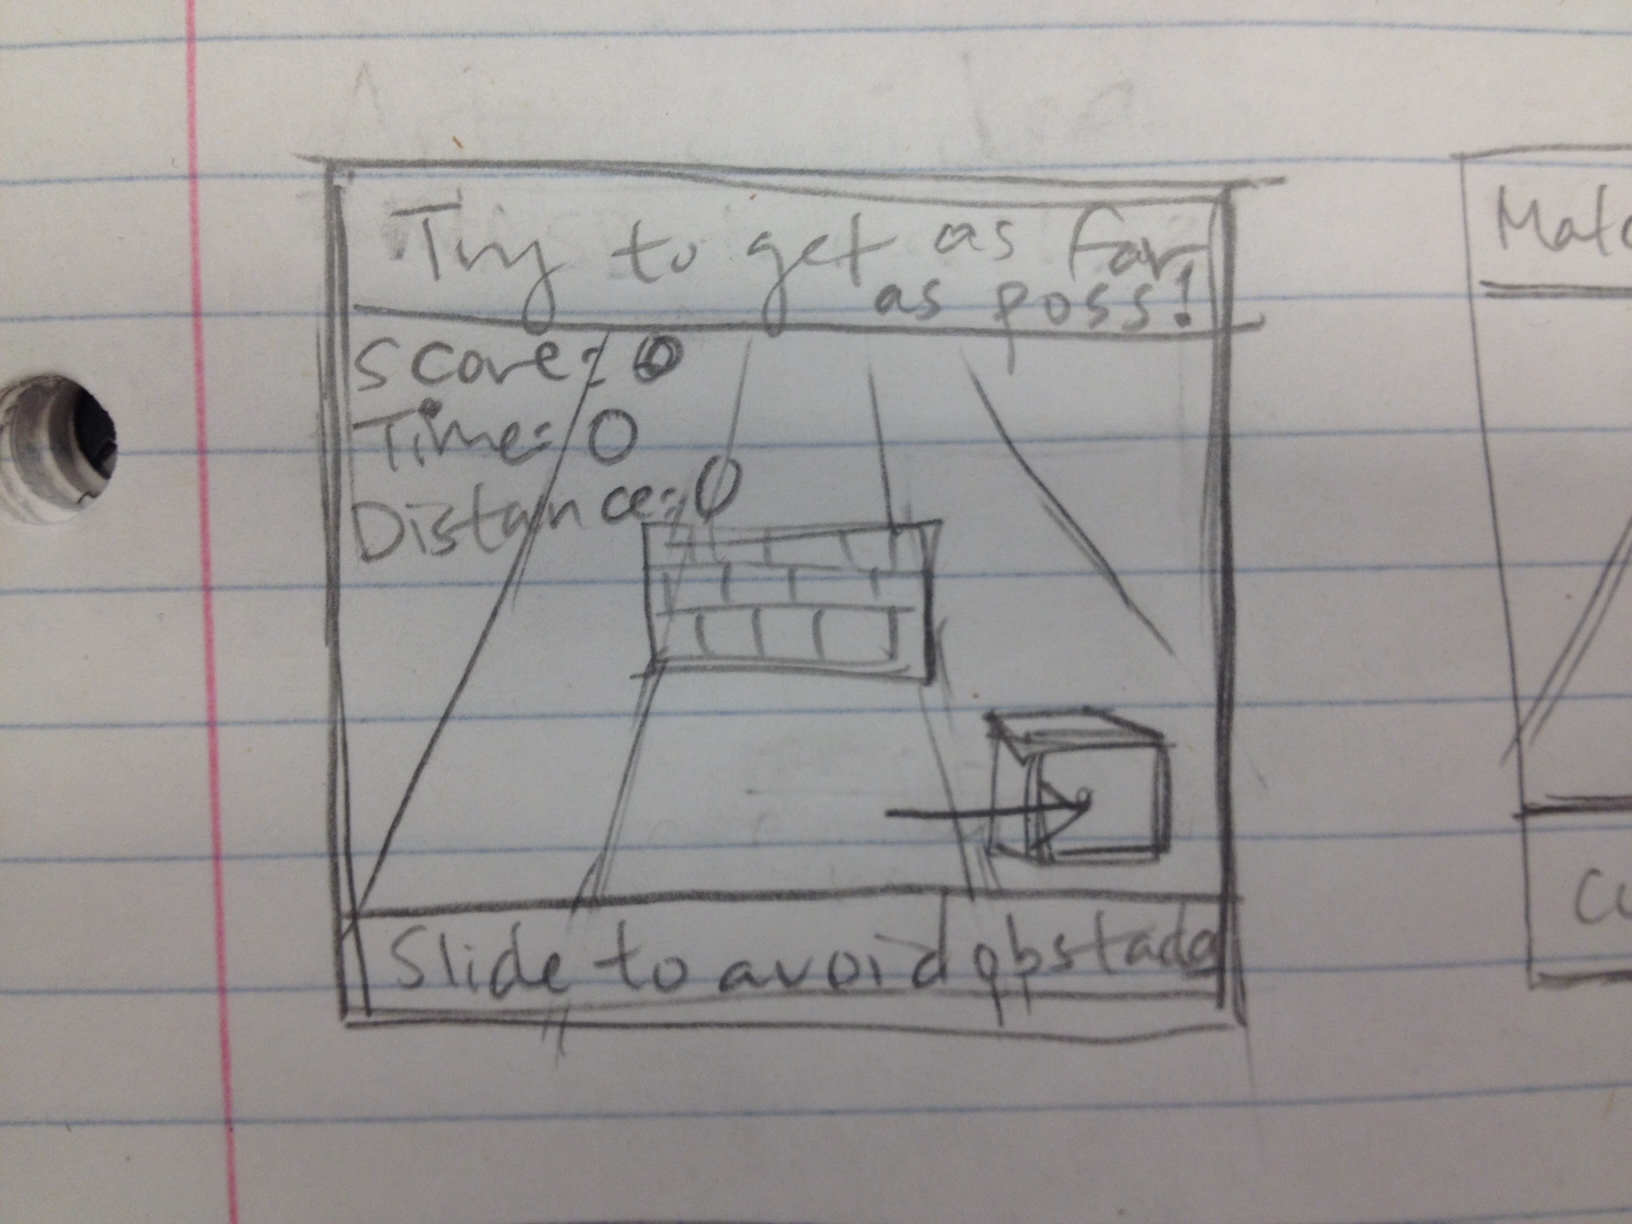 Try to get as far
as poss!
Score: 0
Time: 0
Distance: 0
Slide to avoid obstacle